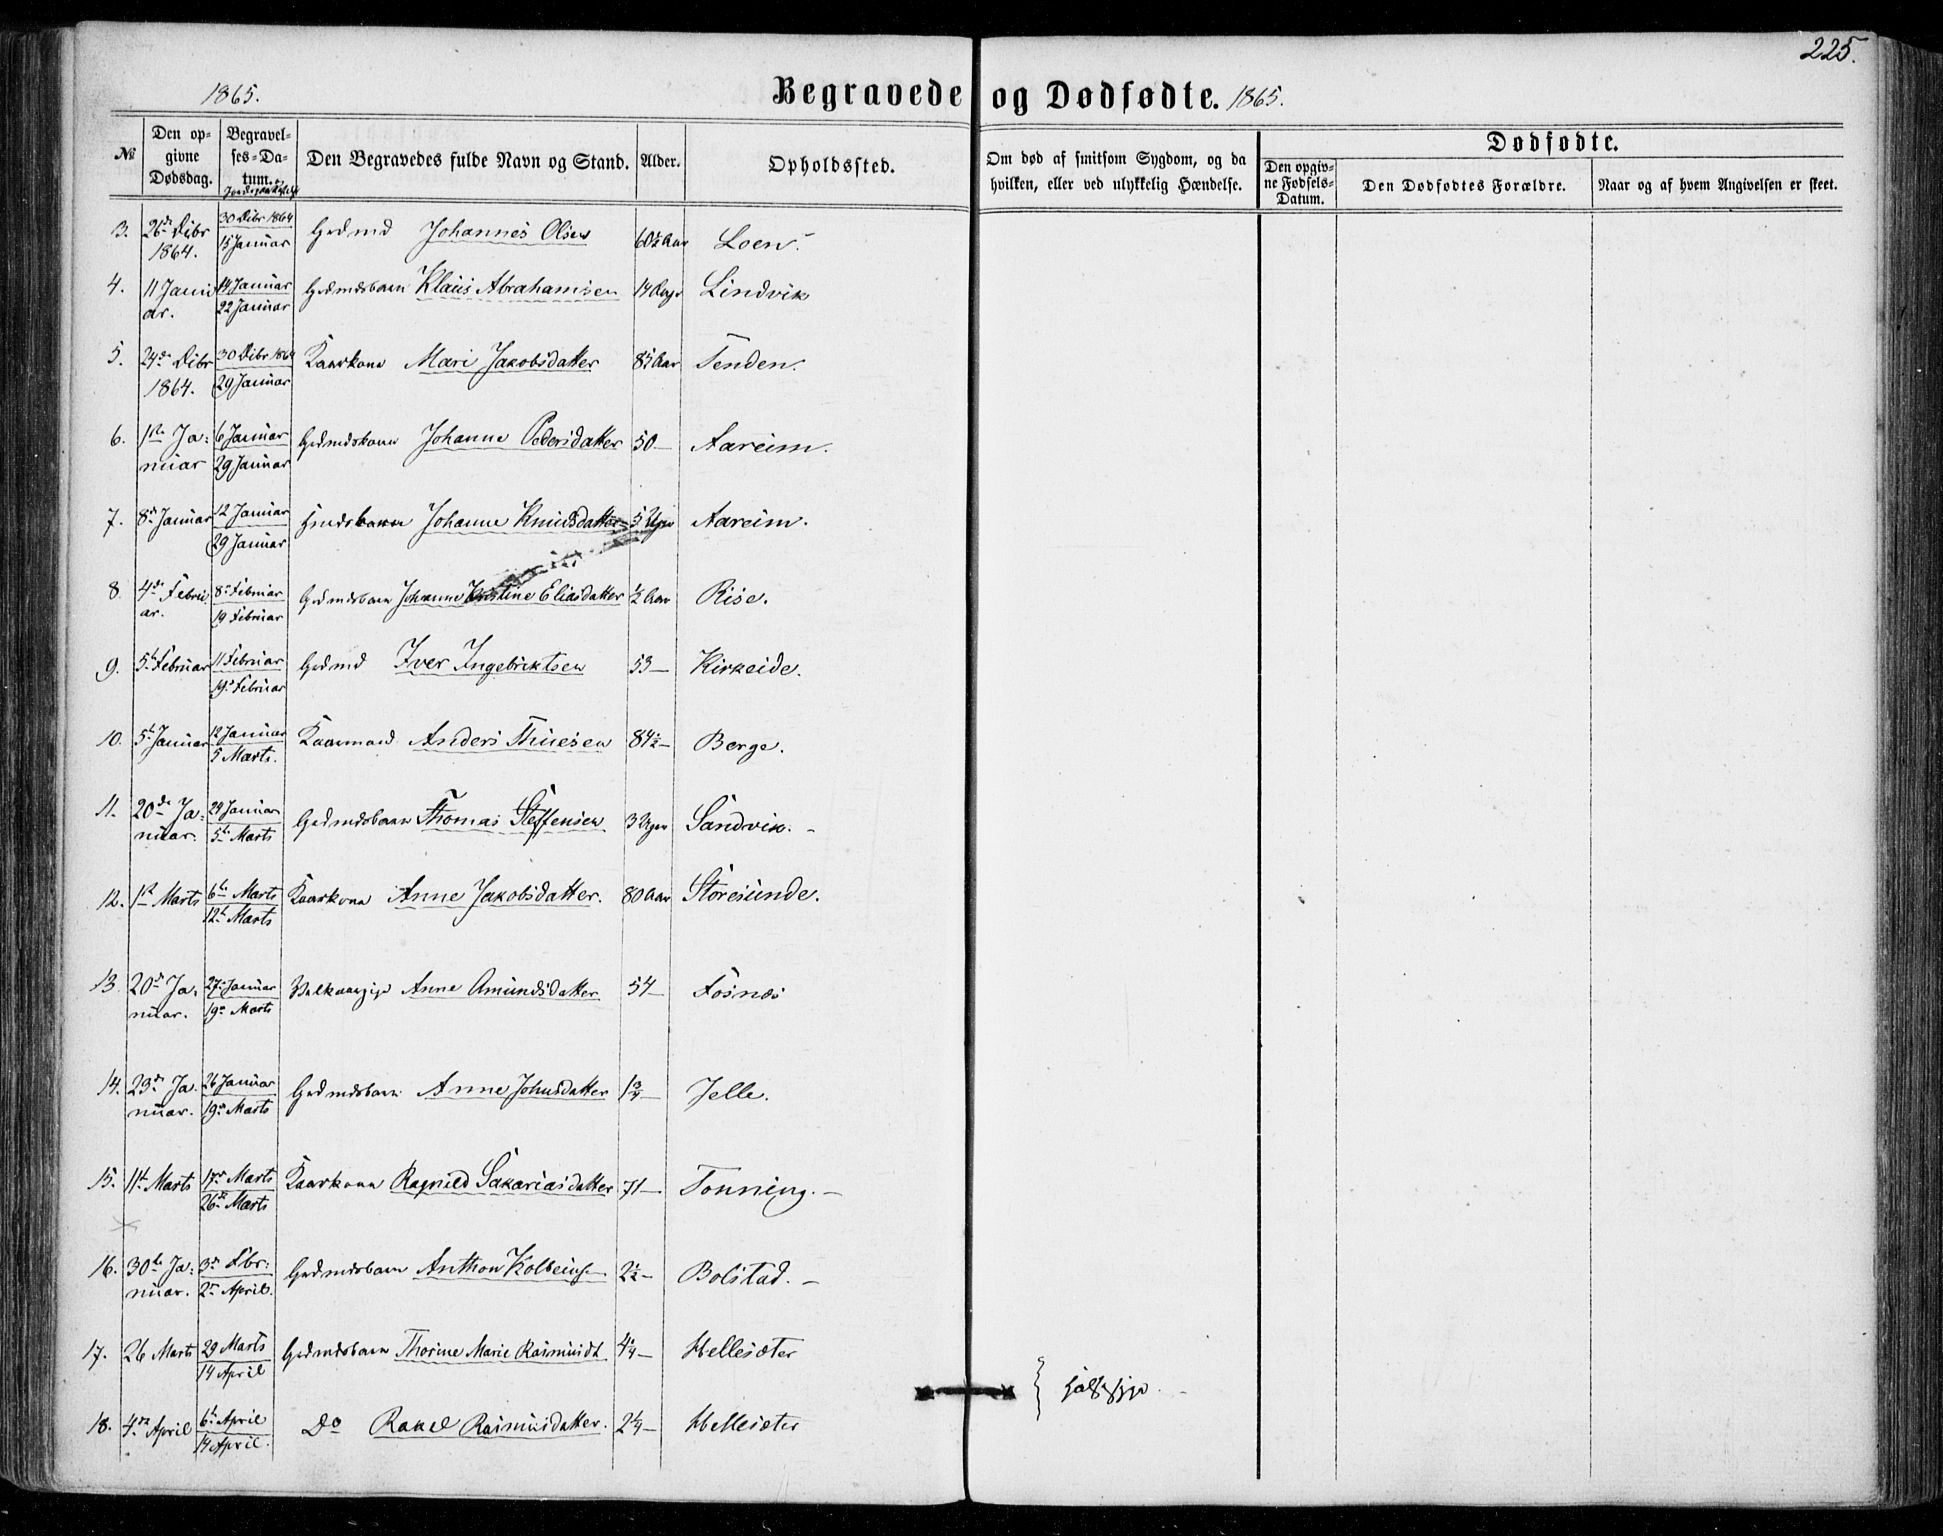 225.
1865. Begravede og Dødfødte. 1865.
№ Den opgivne Dødsdag. Begravelses-Datum. Den Begravedes fulde Navn og Stand. Alder. Opholdssted. Om død af smitsom Sygdom, og da hvilken, eller ved ulykkelig Hændelse. Dødfødte. Den opgivne Fødsels-Datum. Den Dødfødtes Forældre. Naar og af hvem Angivelsen er skeet.
3. 26de Dcbr 1864. 30 Dcbr 1864 15 Januar Grdmd Johannes Olsen 60½ Aar Loen.
4. 11 Januar. 14 Januar 22 Januar Grdmdsbarn Klaus Abrahamsen 14 Dage Lindvik
5. 24de Dcbr 1864. 30 Dcbr 1864 29 Januar Kaarkone Mari Jakobsdatter 85 Aar Tenden.
6. 1ste Januar 6 Januar 29 Januar Grdmdskone Johanne Pedersdatter 50 — Aareim.
7. 8de Januar 12 Januar 29 Januar Johanne Knudsdatter 5 Uger Aareim.
8. 4de Februar. 8de Februar 19 Februar Grdmdsbarn Johanne Kristine Eliasdatter ½ Aar Rise.
9. 5te Februar 11 Februar 19de Februar Grdmd Iver Ingebriktsen 53 — Kirkeide.
10. 5te Januar 12 Januar 5 Marts. Kaarmand Anders Thuesen 84½ — Berge.
11. 20de Januar. 24 Januar 5te Marts Grdmdsbarn Thomas Steffensen 3 Uger Sandvik. —
12. 1ste Marts 6te Marts 12te Marts Kaarkone Anne Jakobsdatter. 80 Aar Storesunde.
13. 20de Januar. 27de Januar 19de Marts Anne Amundsdatter 54 — Fosnæs
14. 23de Januar. 26 Januar 19de Marts Grdmdsbarn Anne Johnsdatter 1¾ — Jelle.
15. 11te Marts 17de Marts 26de Marts Kaarkone Ragnild Sakariasdatter 71 — Tonning. —
16. 30te Januar. 3de Fbr: 2den April. Grdmdsbarn Anthon Kolbeins. 2½ — Bolstad. —
17. 26 Marts 29 Marts 14 April Grdmdsbarn Thorine Marie Rasmusdt 4¼ — Hellesæter
18. 4de April 6te April 14 April. Do Rakel Rasmusdatter. 2¼ — Hellesæter